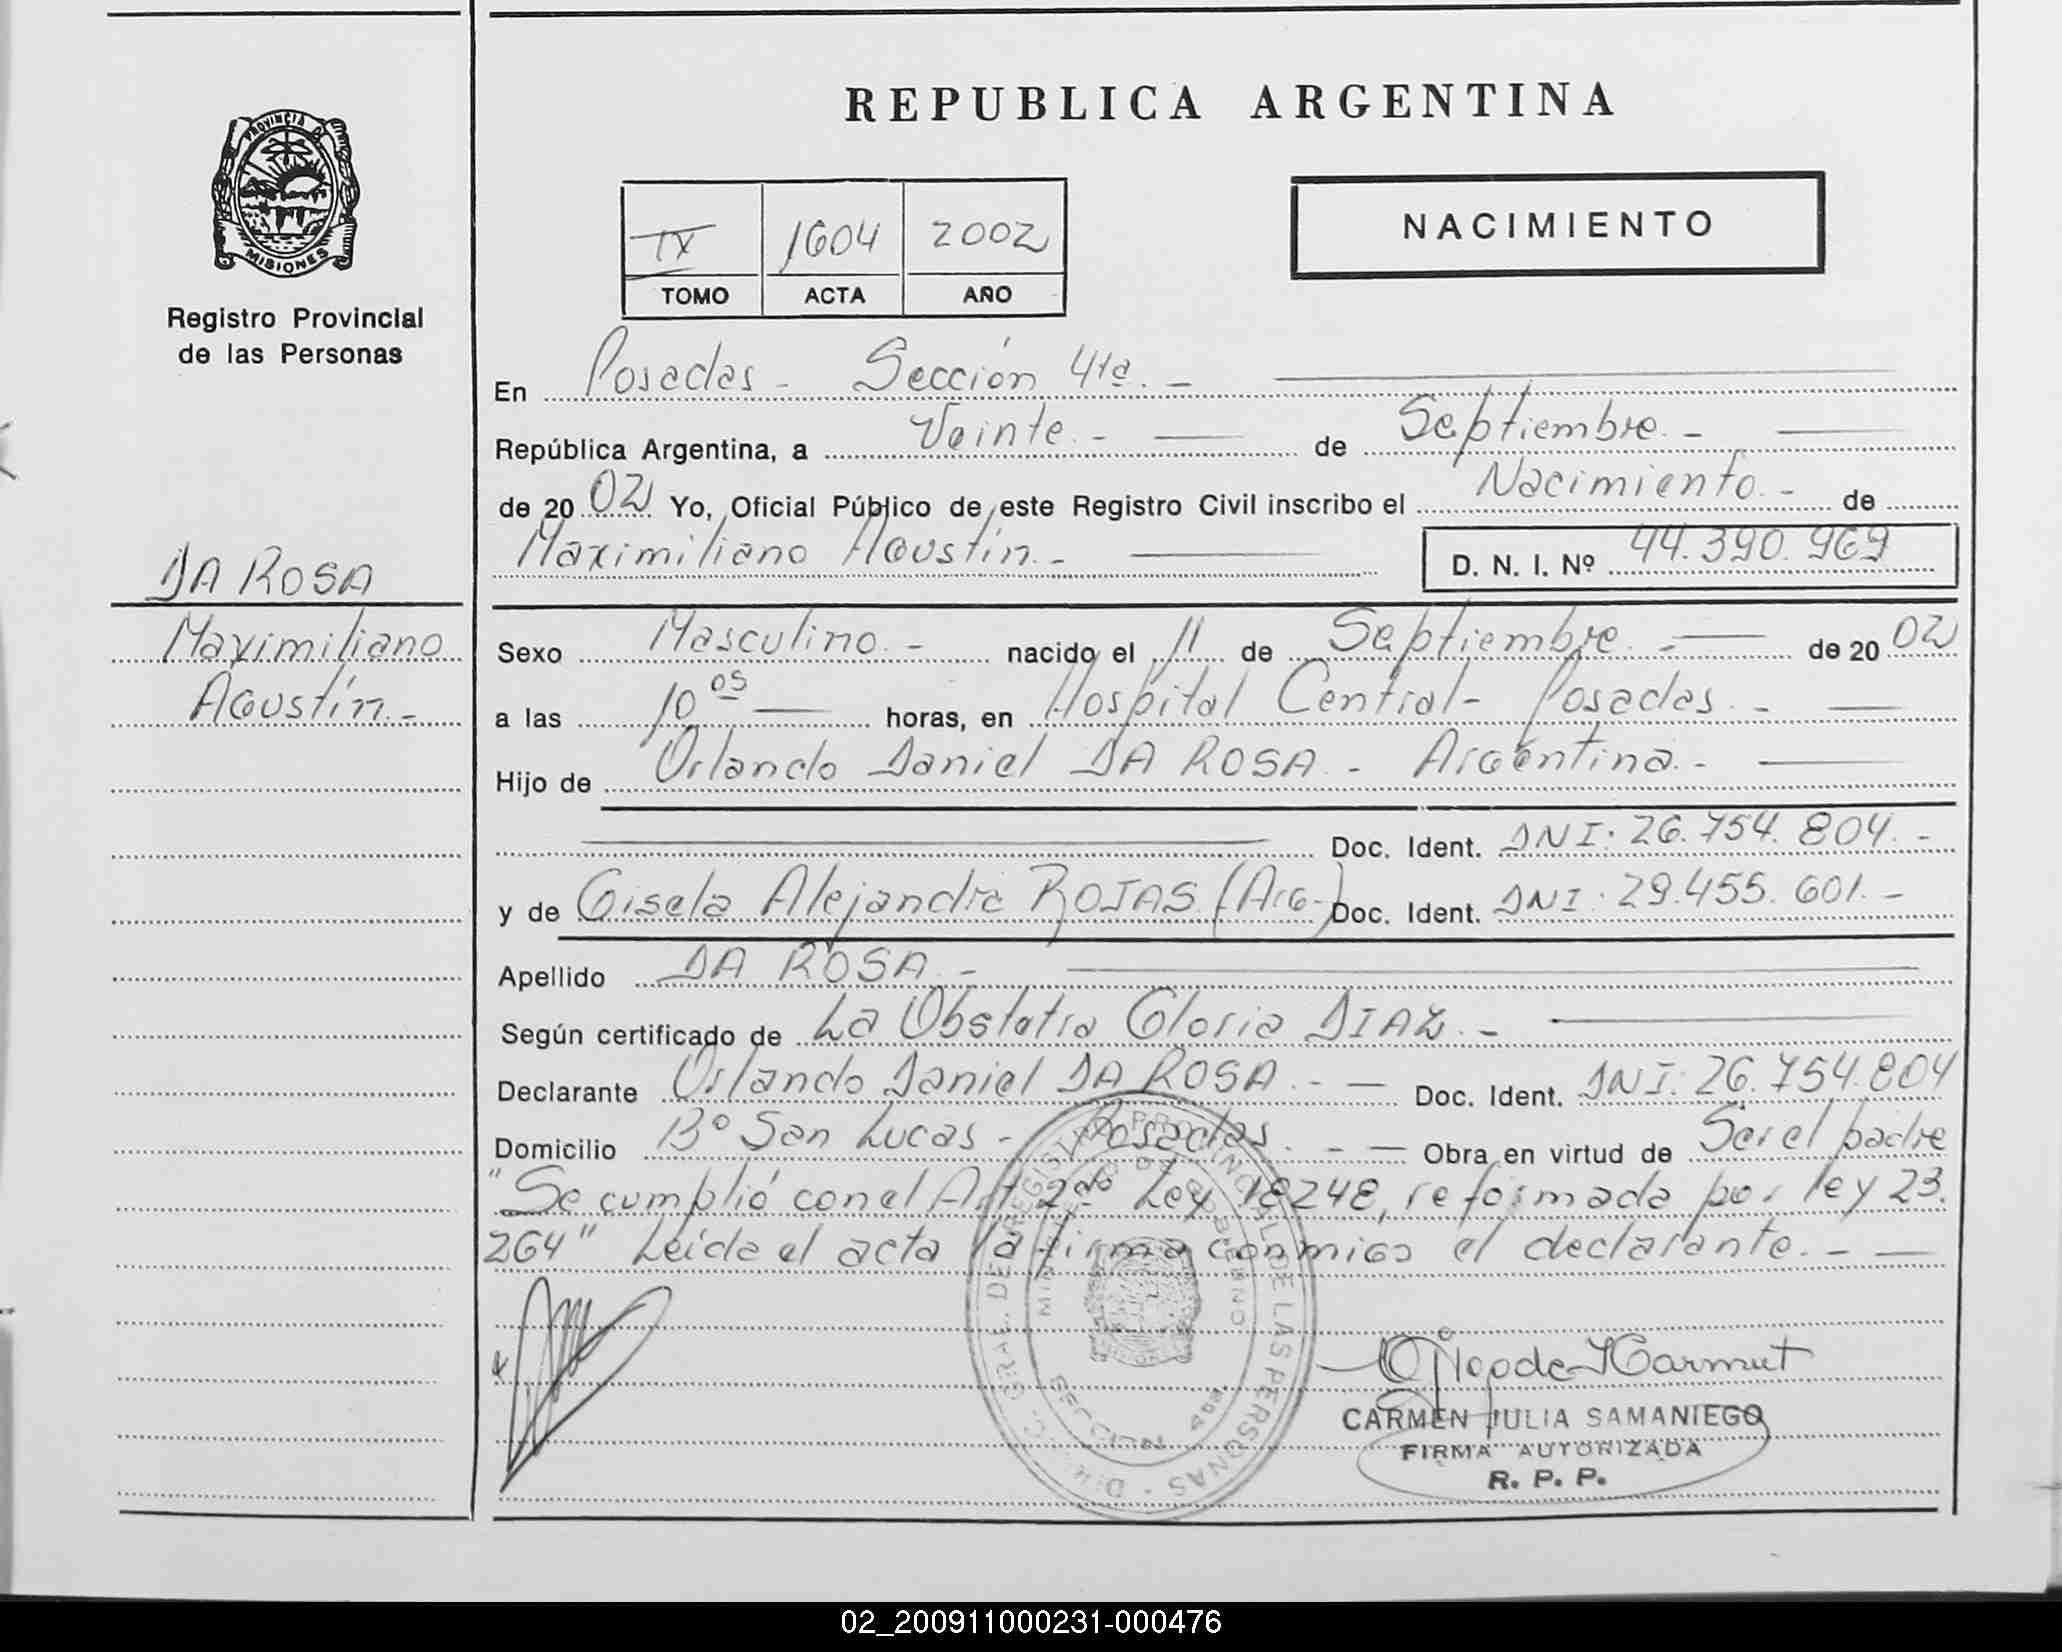 PROVINCIA DE
MISIONES
Registro Provincial
de las Personas
DA ROSA
Maximiliano
Agustín.-
REPUBLICA ARGENTINA
IX 1604 2002
TOMO ACTA AÑO
NACIMIENTO
En Posadas - Sección 4ta. -
República Argentina, a Veinte. - de Septiembre. -
de 2002 Yo, Oficial Público de este Registro Civil inscribo el Nacimiento. - de
Maximiliano Agustín. - D. N. I. Nº 44.390.969
Sexo Masculino. - nacido el 11 de Septiembre. - de 2002
a las 10 05 horas, en Hospital Central - Posadas. -
Hijo de Orlando Daniel DA ROSA. - Argentina. -
Doc. Ident. DNI: 26.754.804. -
y de Gisela Alejandra ROJAS (Arg.) Doc. Ident. DNI: 29.455.601. -
Apellido DA ROSA. -
Según certificado de La Obstetra Gloria DIAZ. -
Declarante Orlando Daniel DA ROSA. - Doc. Ident. DNI: 26.754.804
Domicilio Bº San Lucas - Posadas. - Obra en virtud de Ser el padre
"Se cumplió con el Art 2do Ley 18248, reformada por ley 23.
264" Leída el acta la firma conmigo el declarante. -
DIREC. GRAL. DE REGISTRO PROVINCIAL DE LAS PERSONAS
MINISTERIO DE GOBIERNO
SECCION 4ta
CARMEN JULIA SAMANIEGO
FIRMA AUTORIZADA
R. P. P.
02_200911000231-000476